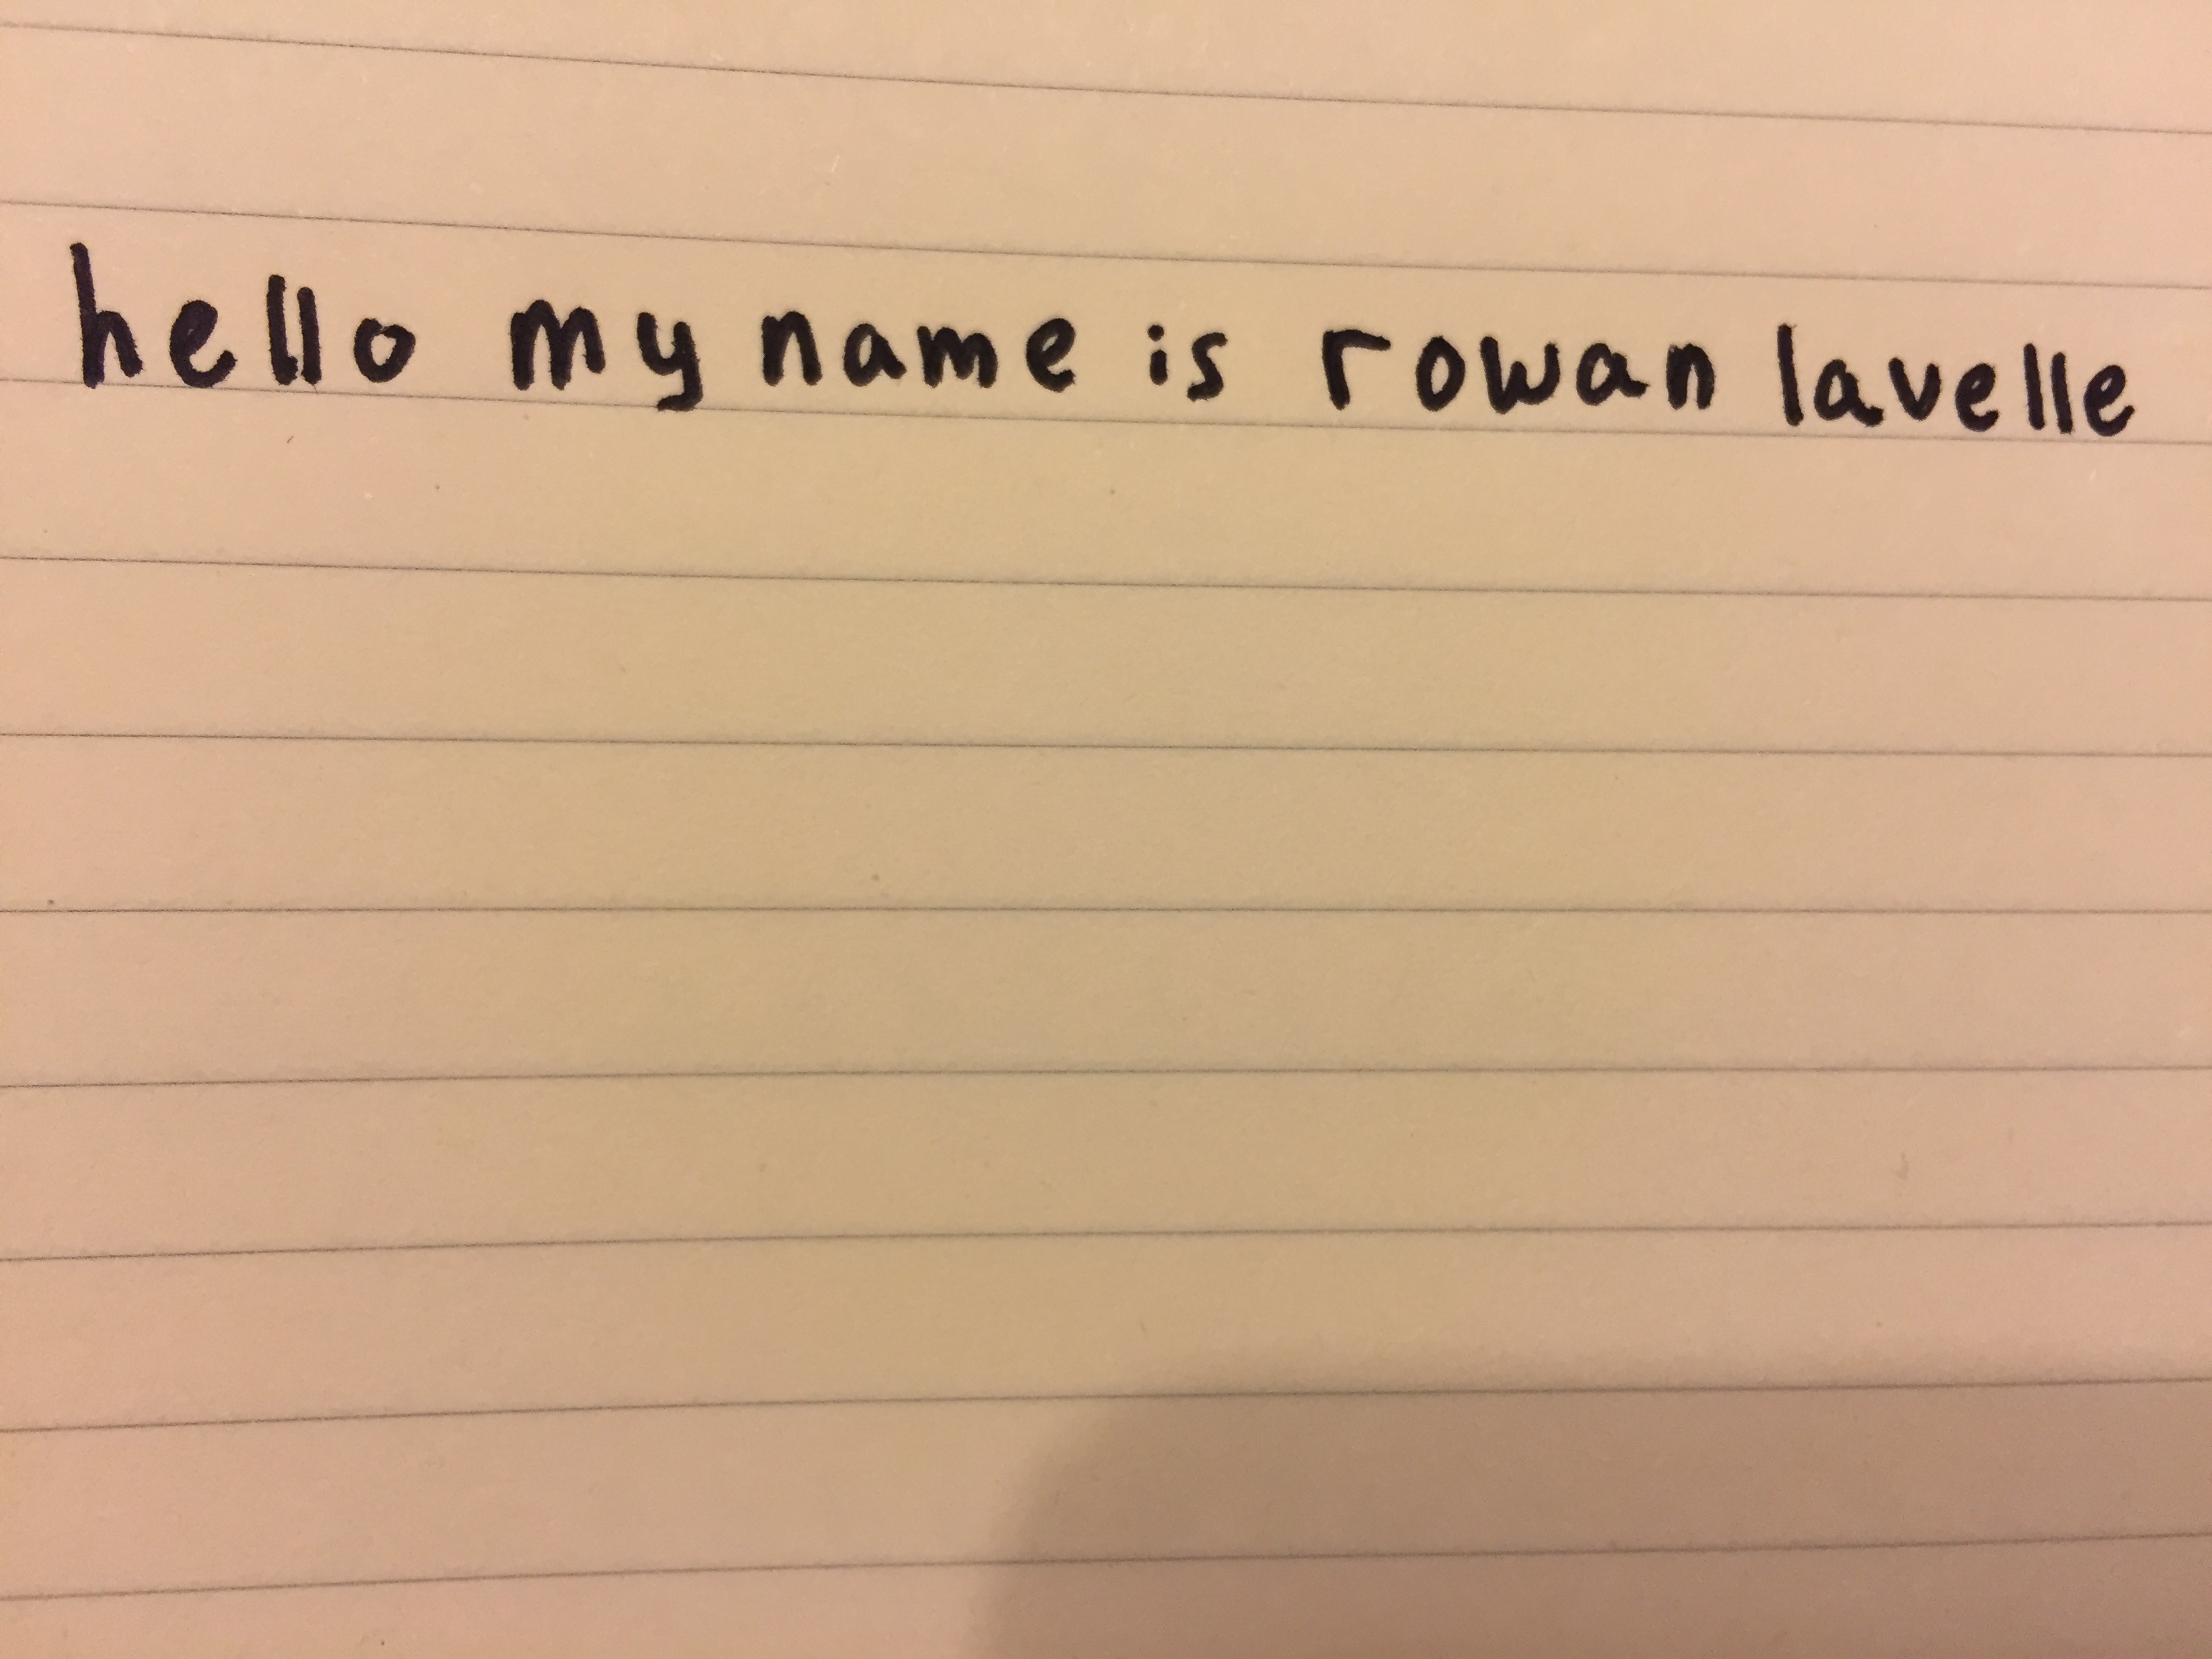 hello my name is rowan lavelle